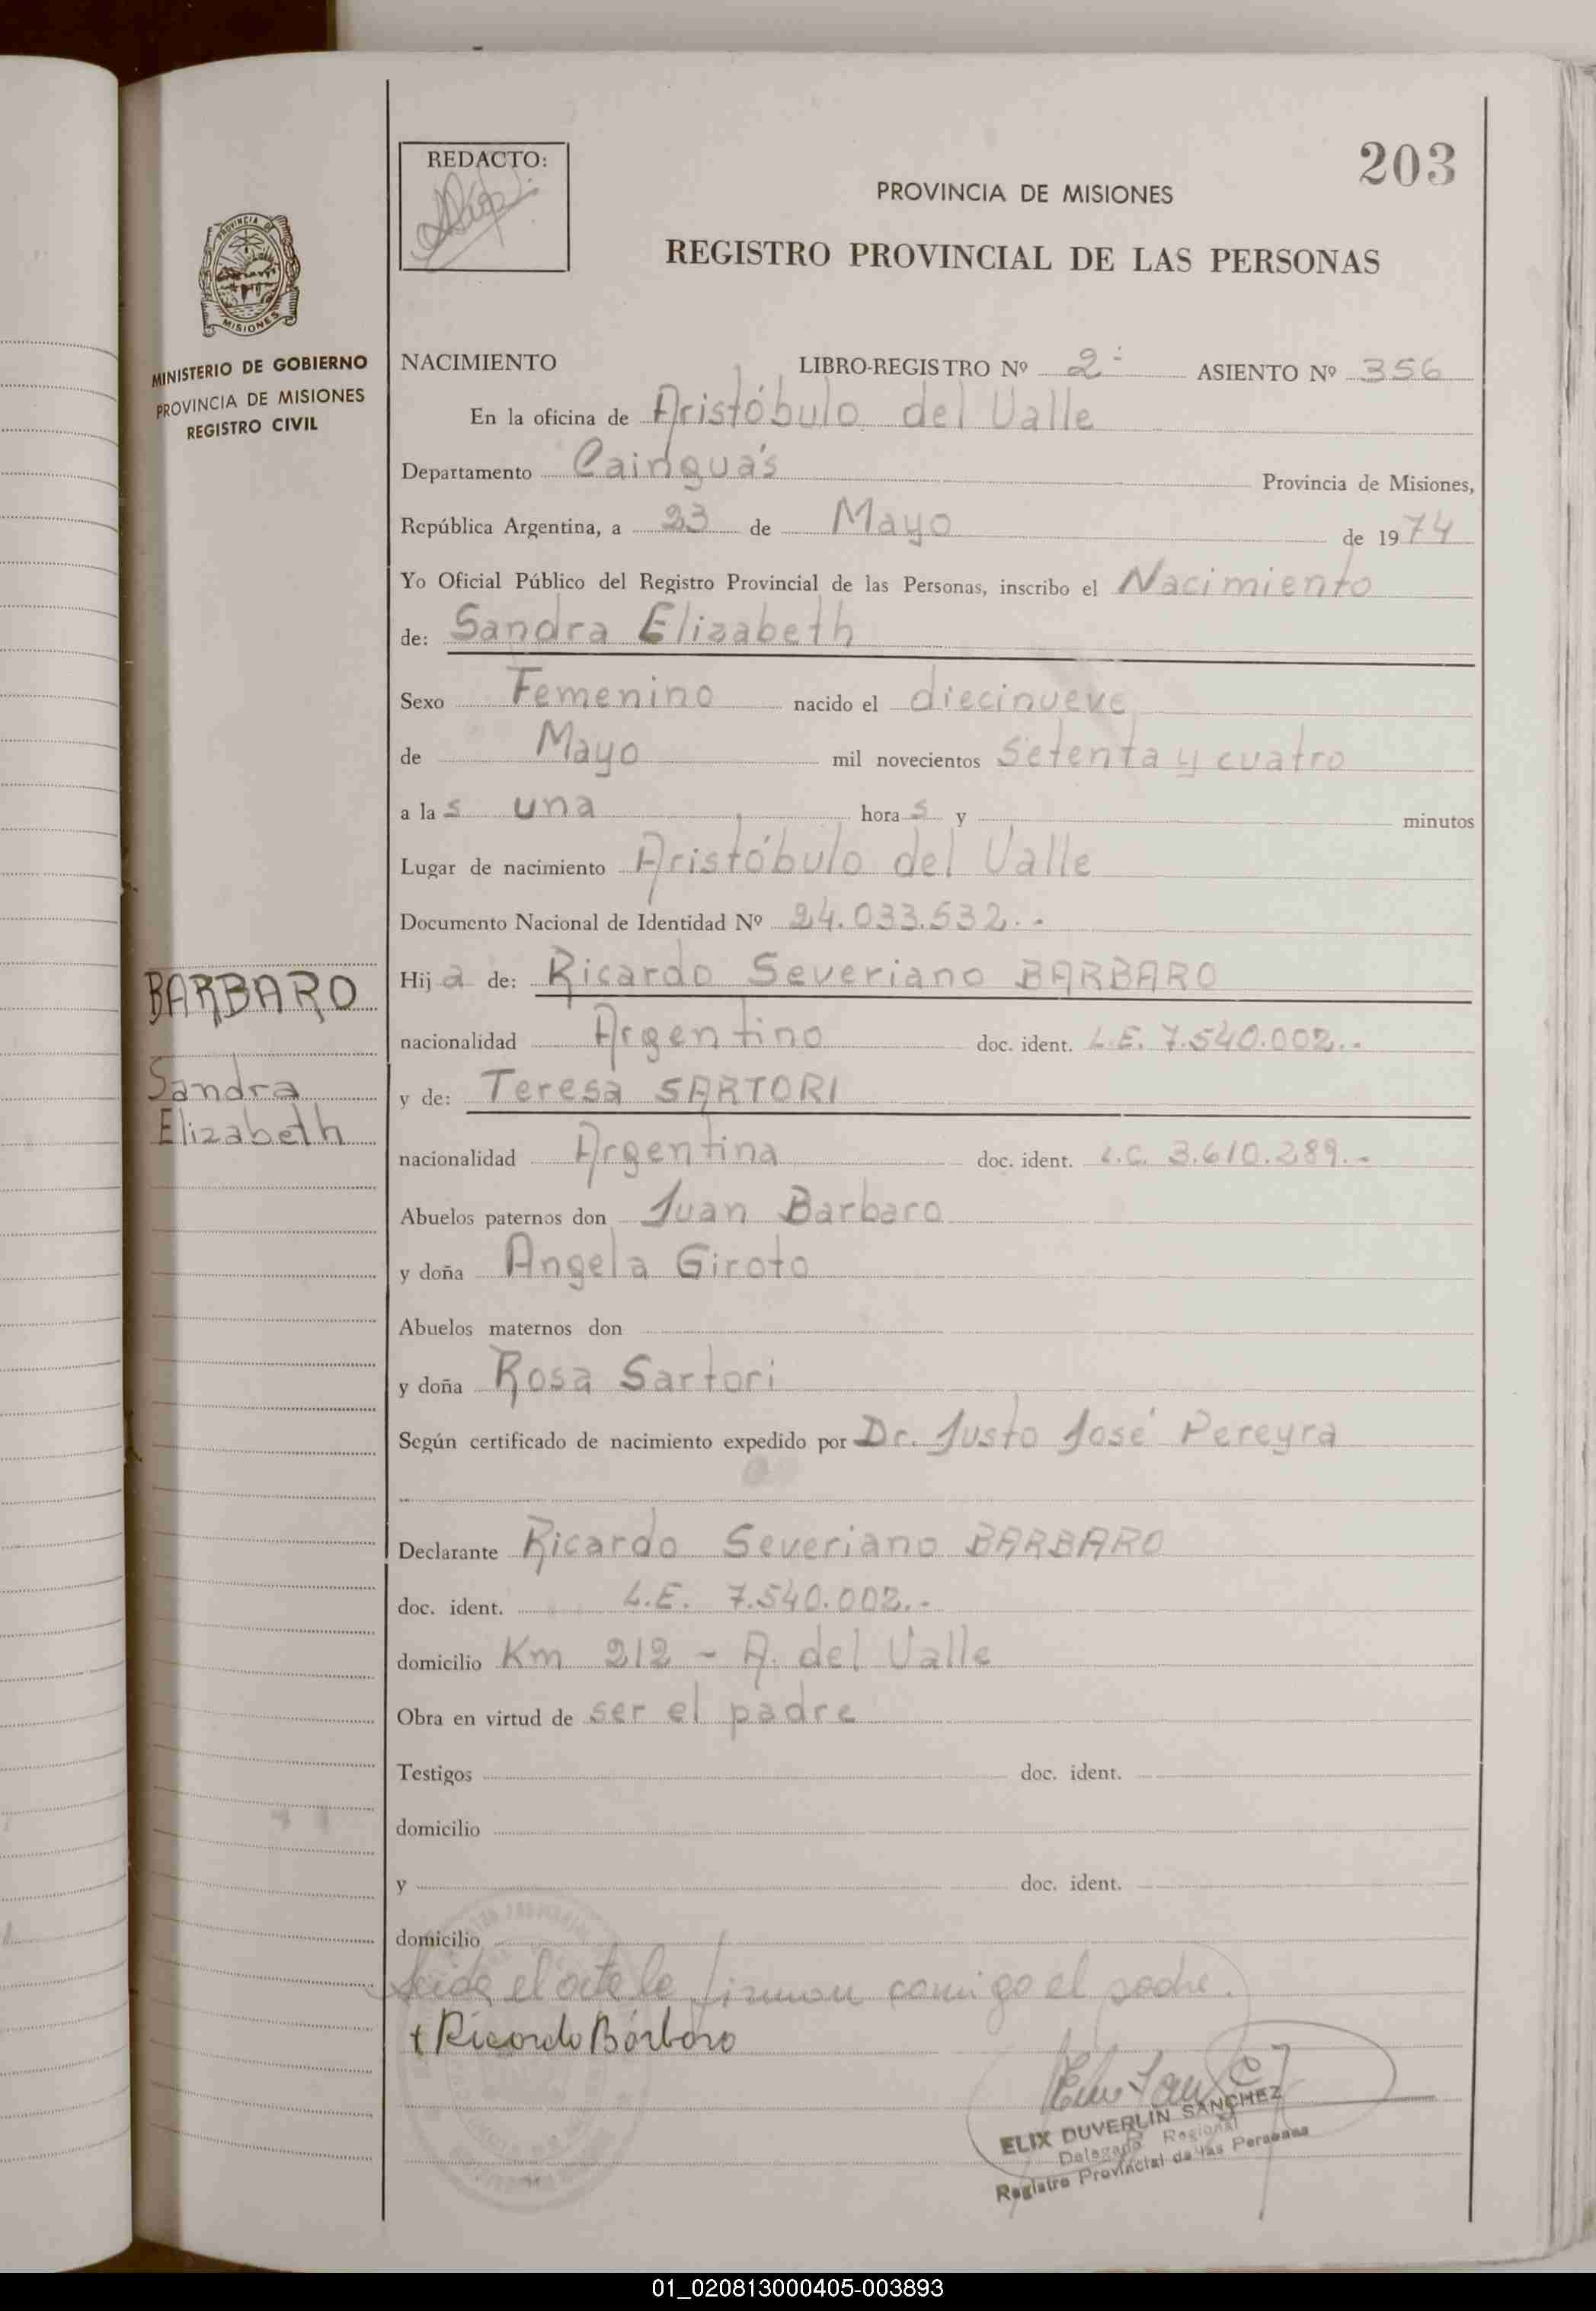 203
REDACTO:
PROVINCIA DE MISIONES
REGISTRO PROVINCIAL DE LAS PERSONAS
PROVINCIA DE
MISIONES
MINISTERIO DE GOBIERNO
PROVINCIA DE MISIONES
REGISTRO CIVIL
NACIMIENTO LIBRO-REGISTRO Nº 2º ASIENTO Nº 356
En la oficina de Aristóbulo del Valle
Departamento Cainguás Provincia de Misiones,
República Argentina, a 23 de Mayo de 1974
Yo Oficial Público del Registro Provincial de las Personas, inscribo el Nacimiento
de: Sandra Elizabeth
Sexo Femenino nacido el diecinueve
de Mayo mil novecientos setenta y cuatro
a las una horas y minutos
Lugar de nacimiento Aristóbulo del Valle
Documento Nacional de Identidad Nº 24.033.532.-
BARBARO
Sandra
Elizabeth
Hija de: Ricardo Severiano BARBARO
nacionalidad Argentino doc. ident. L.E. 7.540.002.-
y de: Teresa SARTORI
nacionalidad Argentina doc. ident. L.C. 3.610.289.-
Abuelos paternos don Juan Barbaro
y doña Angela Giroto
Abuelos maternos don
y doña Rosa Sartori
Según certificado de nacimiento expedido por Dr. Justo José Pereyra
Declarante Ricardo Severiano BARBARO
doc. ident. L.E. 7.540.002.-
domicilio Km 212 - A. del Valle
Obra en virtud de ser el padre
Testigos doc. ident.
domicilio
y doc. ident.
domicilio
Leida el acta le firman comigo el padre.
+ Ricardo Bárbaro
ELIX DUVERLIN SANCHEZ
Delegado Regional
Registro Provincial de las Personas
01_020813000405-003893